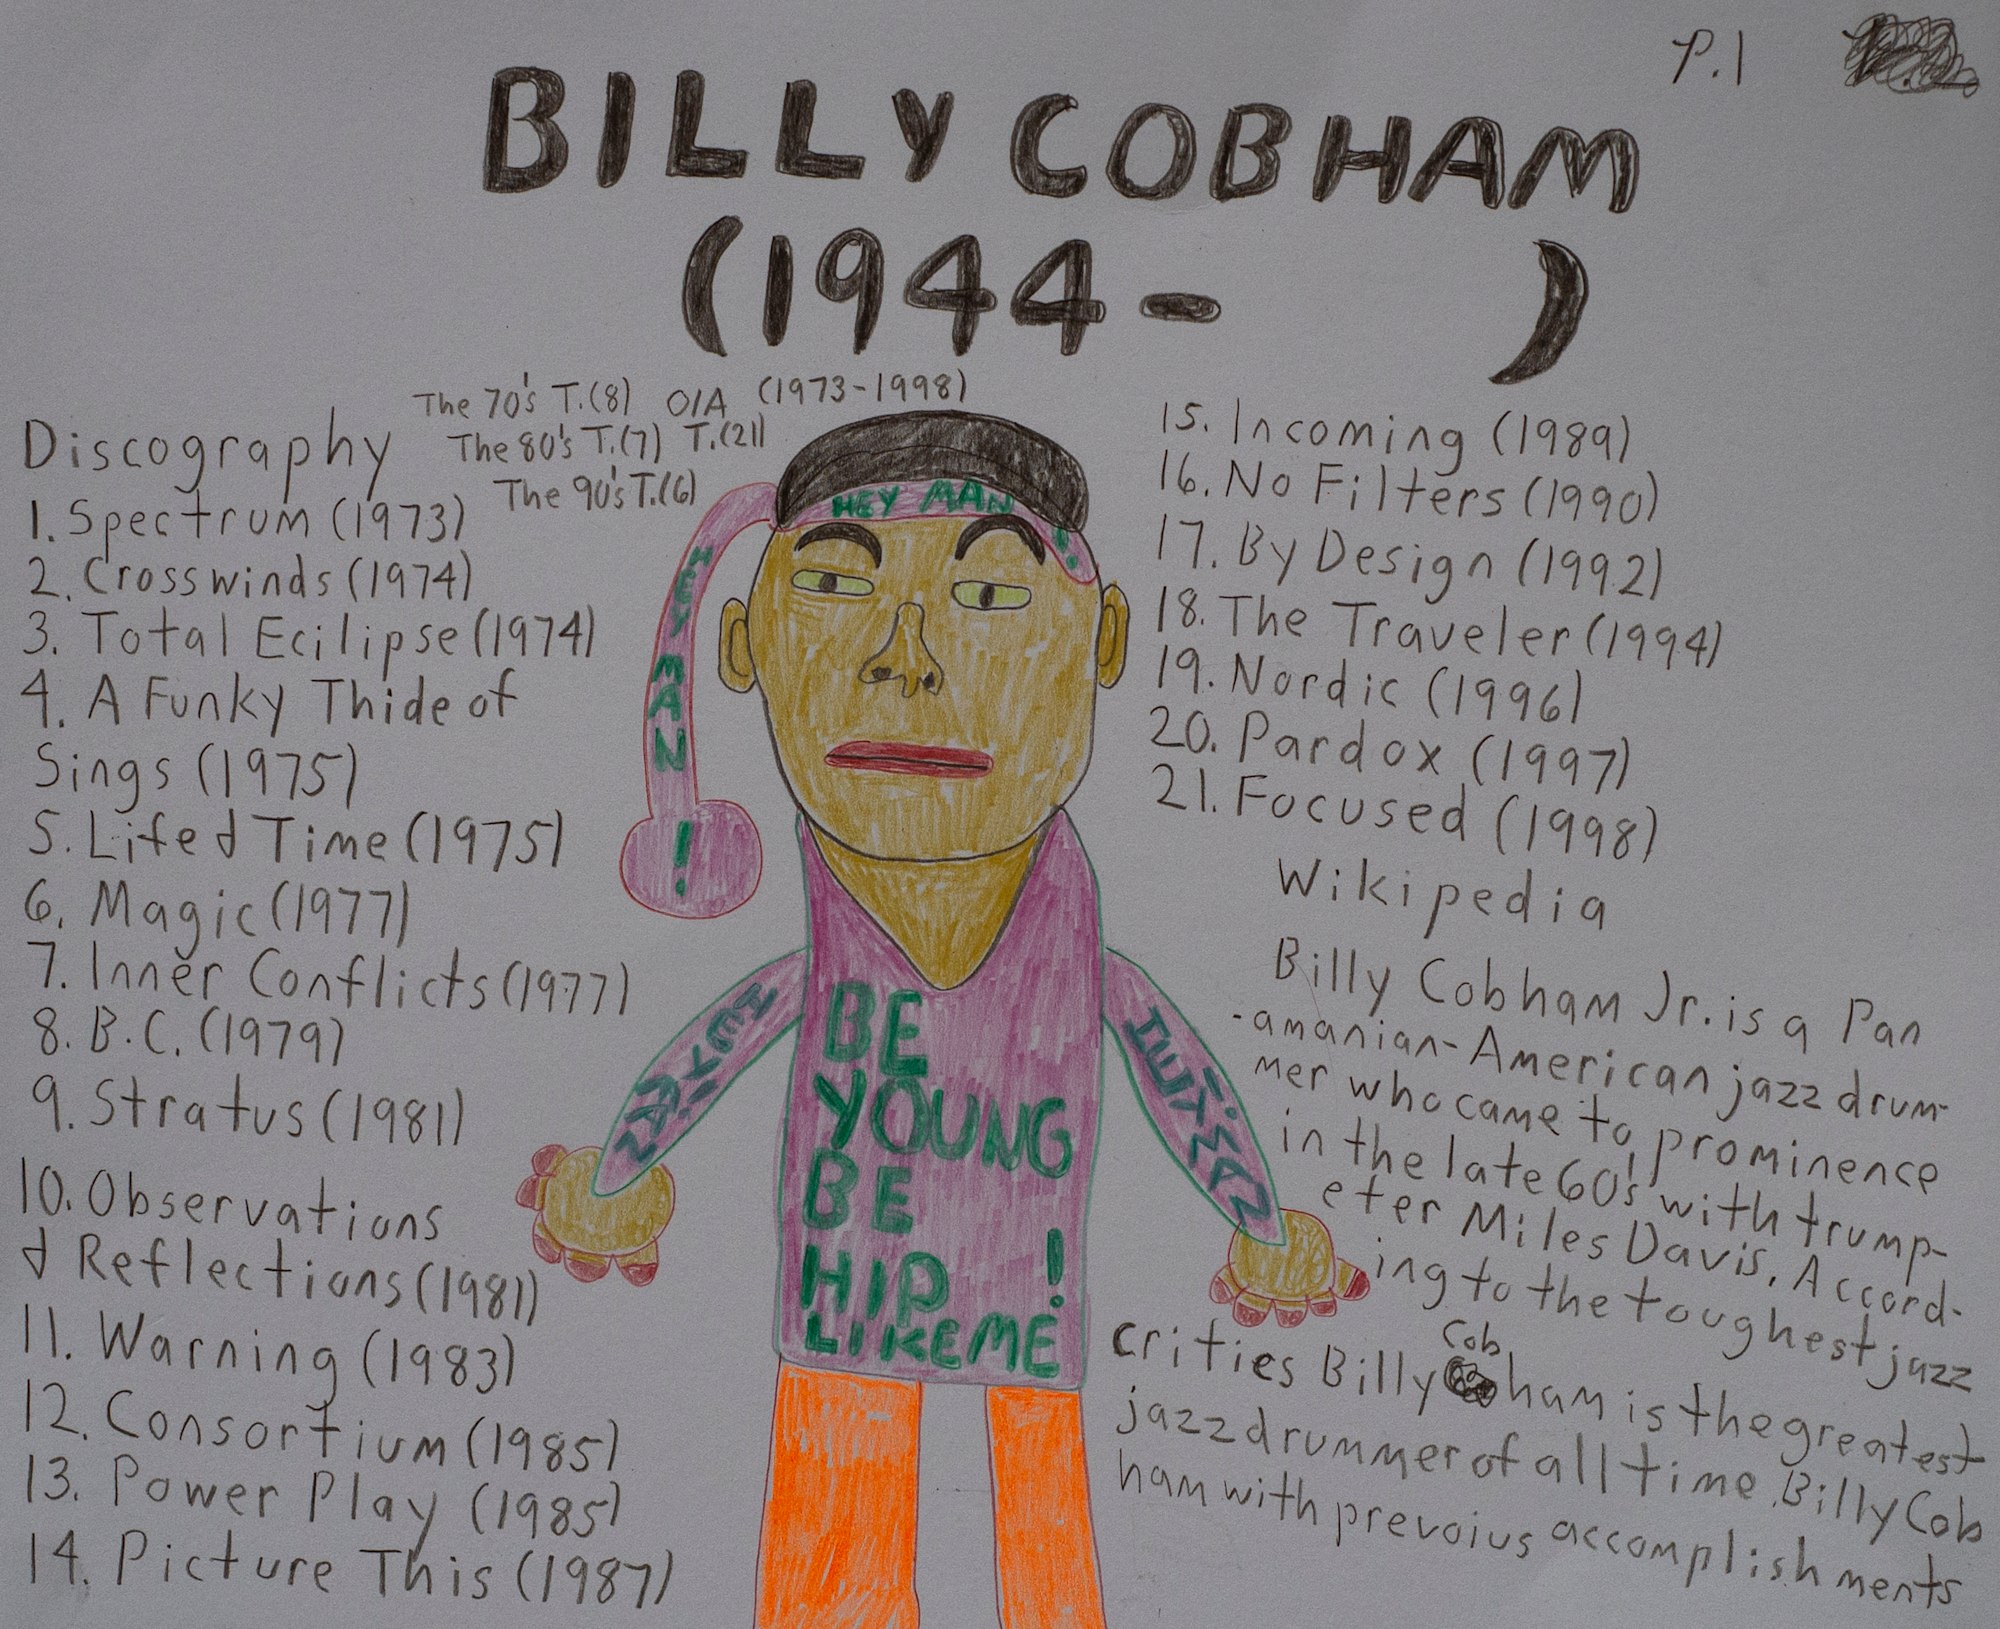 P.1
BILLY COBHAM
(1944- )
The 70's T.(8) O/A (1973-1998)
The 80's T.(7) T.(21)
The 90's T.(6)
Discography
1. Spectrum (1973)
2. Crosswinds (1974)
3. Total Ecilipse (1974)
4. A Funky Thide of
Sings (1975)
5. Life & Time (1975)
6. Magic (1977)
7. Inner Conflicts (1977)
8. B.C. (1979)
9. Stratus (1981)
10. Observations
& Reflections (1981)
11. Warning (1983)
12. Consortium (1985)
13. Power Play (1985)
14. Picture This (1987)
HEY MAN!
HEY MAN!
HEY MAN!
HEY MAN!
BE
YOUNG
BE
HIP!
LIKE ME
15. Incoming (1989)
16. No Filters (1990)
17. By Design (1992)
18. The Traveler (1994)
19. Nordic (1996)
20. Pardox (1997)
21. Focused (1998)
Wikipedia
Billy Cobham Jr. is a Pan
-amanian-American jazz drum-
mer who came to prominence
in the late 60's with trump-
eter Miles Davis. Accord-
ing to the toughest jazz
crities Billy Cobham is the greatest
jazz drummer of all time. Billy Cob
ham with prevoius accomplishments